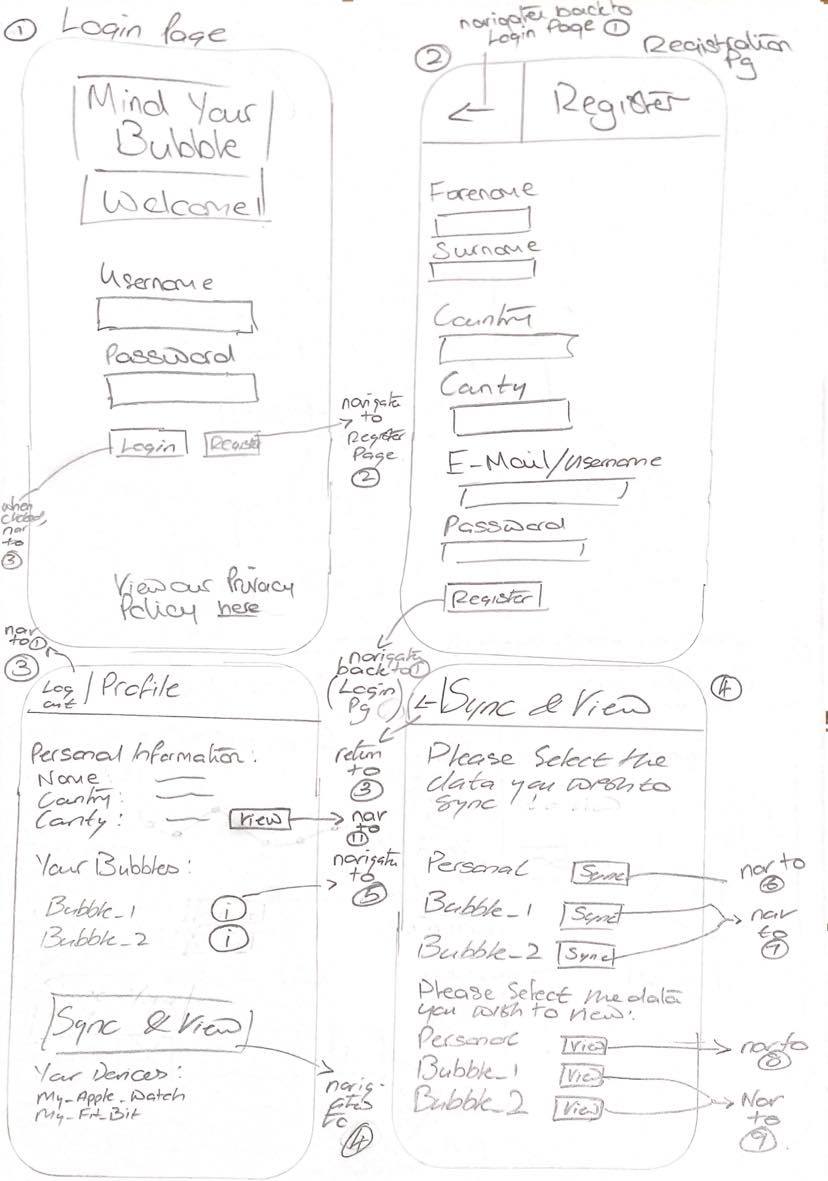 ① Login Page
Mind Your
Bubble
Welcome!
Username
Password
Login Register
navigate
to
Register
Page
②
when
clicked,
nav
to
③
View our Privacy
Policy here
navigates back to
Login Page ①
② Registration
Pg
← Register
Forename
Surname
Country
County
E-Mail/Username
Password
Register
navigate
back to ①
(Login
Pg)
nav
to ①
③
Log
out
Profile
Personal Information:
Name
Country:
County:
View
nav
to
⑪
Your Bubbles:
navigate
to
⑤
Bubble_1 i
Bubble_2 i
Sync & View
navig-
ates
to
④
Your Devices:
My_Apple_Watch
My_Fit_Bit
④
← Sync & View
return
to
③
Please Select the
data you wish to
sync!
Personal Sync
nav to
⑥
Bubble_1 Sync
Bubble_2 Sync
nav
to
⑦
Please Select the data
you wish to view:
Personal View
nav to
⑧
Bubble_1 View
Bubble_2 View
Nav
to
⑨